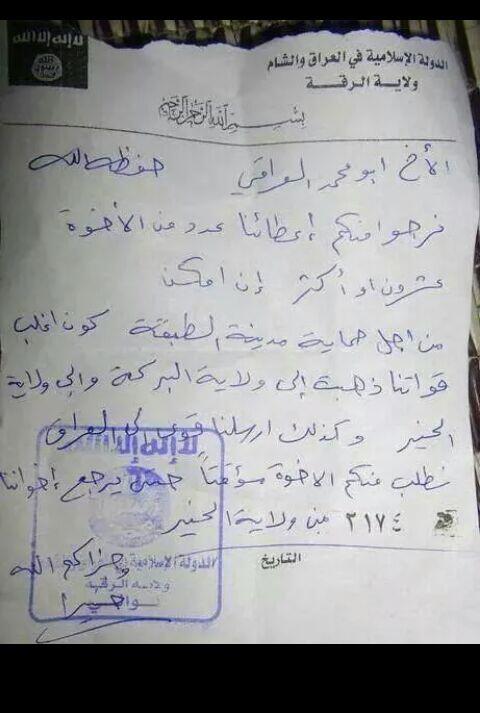 لا إله إلا الله
الله
رسول
محمد
الدولة الإسلامية في العراق والشام
ولاية الرقة
بسم الله الرحمن الرحيم
الأخ ابو محمد العراقي حفظه الله
نرجوا منكم إعطائنا عدد من الأخوة
عشرون او أكثر إن امكن
من اجل حماية مدينة الطبقة كون اغلب
قواتنا ذهبت إلى ولاية البركة والى ولاية
الخير وكذلك ارسلنا قوى إلى العراق
نطلب منكم الاخوة مؤقتاً حتى يرجع إخواننا
٢١٧٤ من ولاية الخير
التاريخ
وجزاكم الله
خيرا
لا إله إلا الله
الدولة الإسلامية
ولاية الرقة